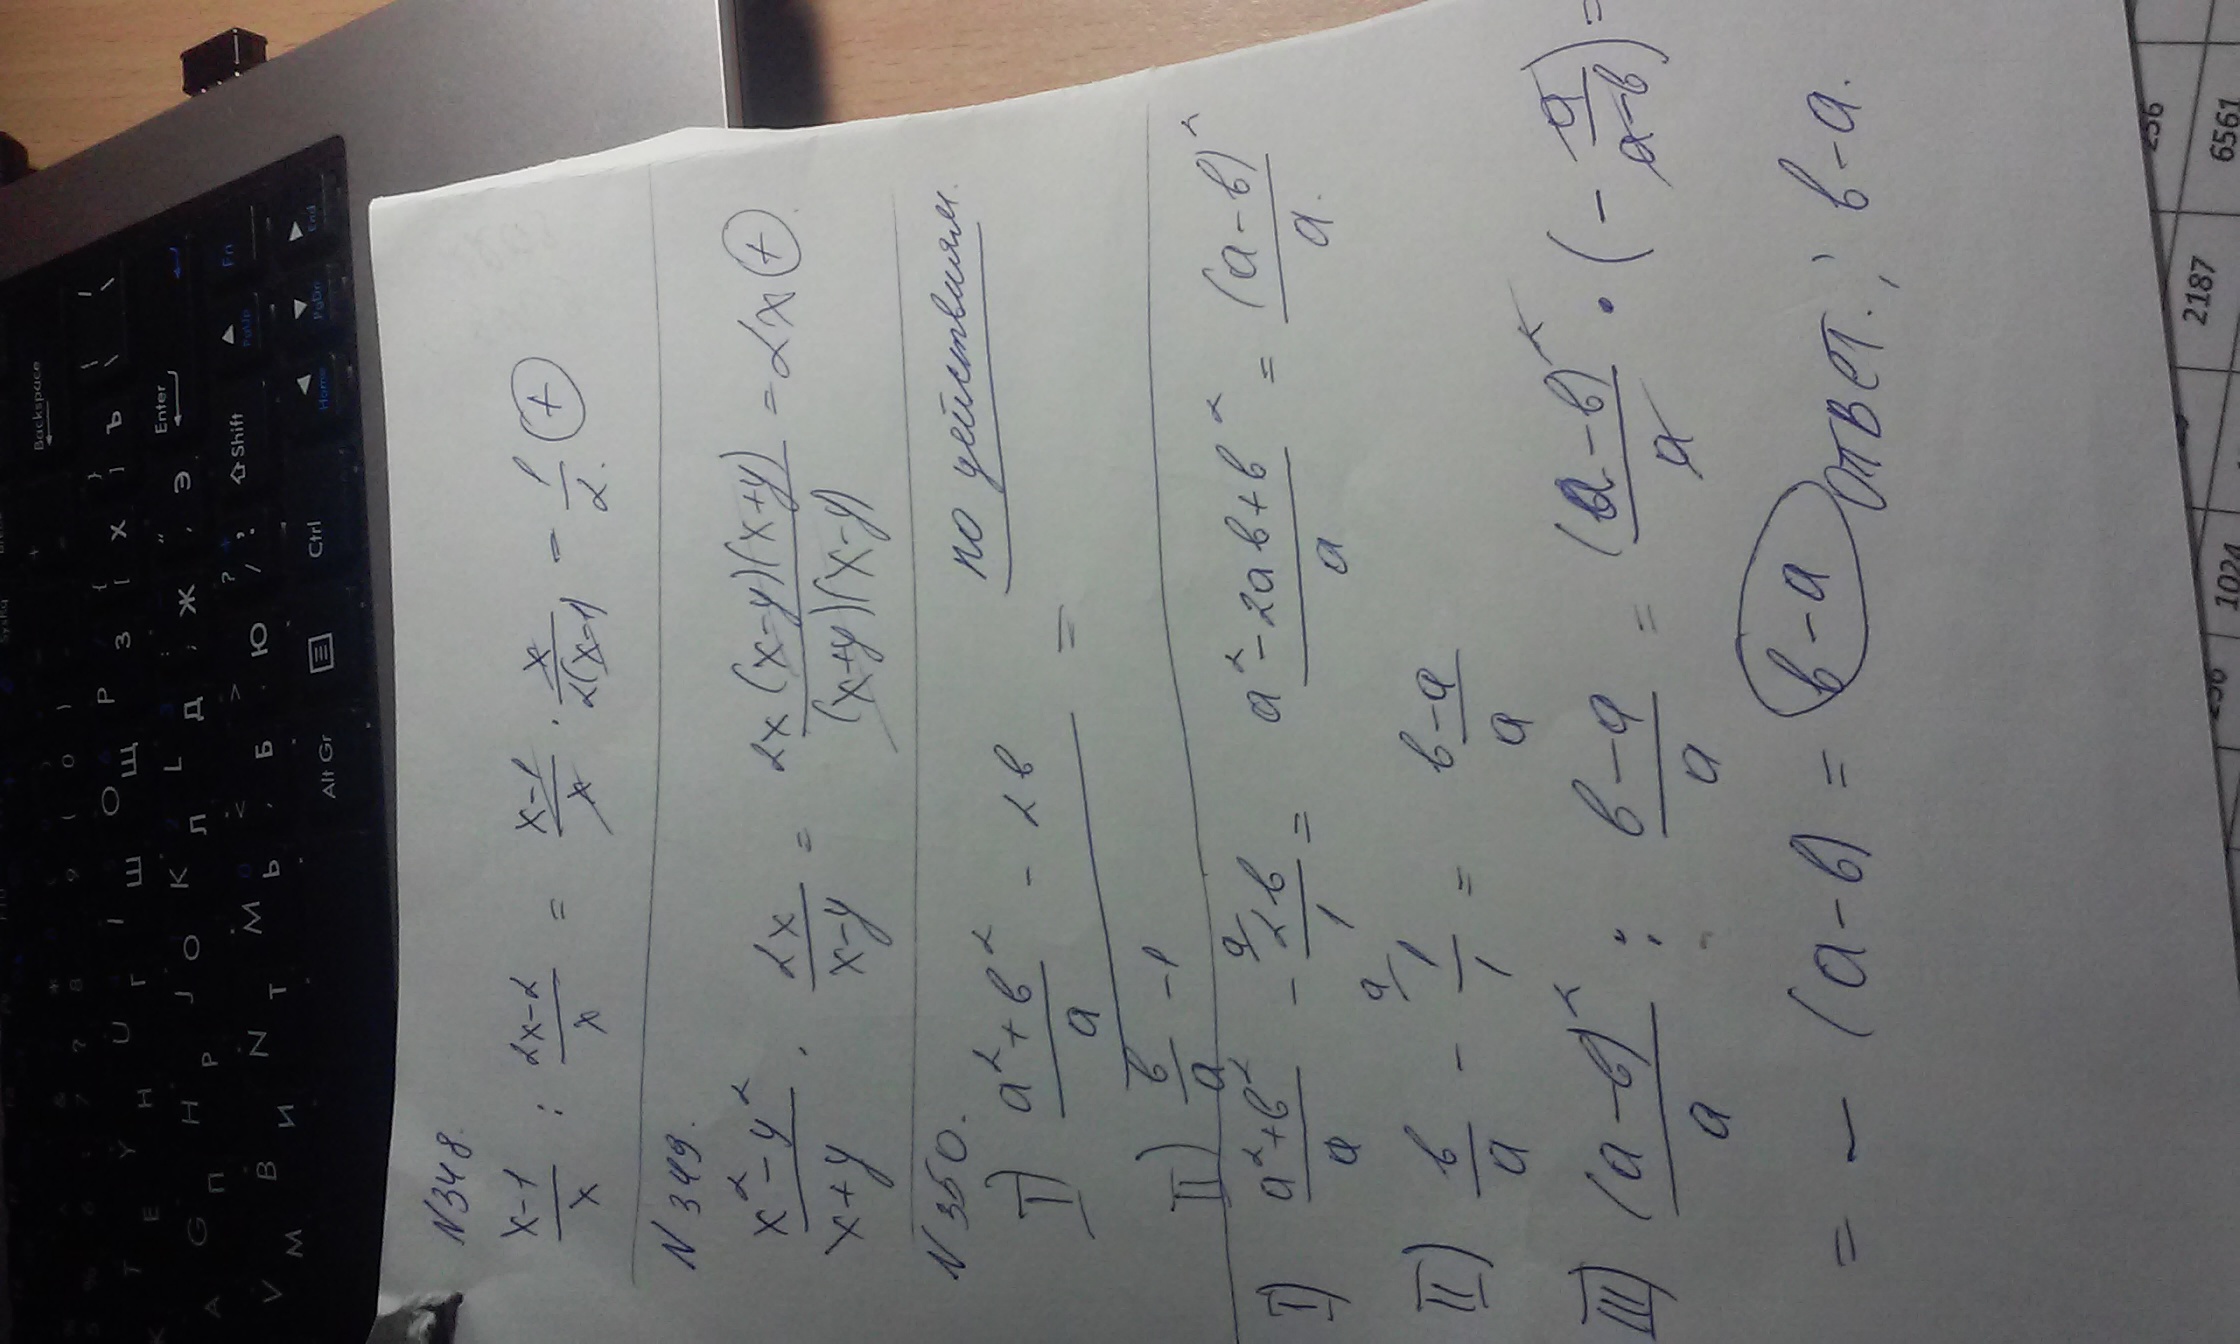 N348.
x-1/x : 2x-2/x = x-1/x · x/2(x-1) = 1/2. (+)
N349.
x²-y²/x+y · 2x/x-y = 2x(x-y)(x+y)/(x+y)(x-y) = 2x (+).
N350. по действиям.
I) a²+b²/a - 2b =
II) b/a - 1
I) a²+b²/a - 2b/1 = a²-2ab+b²/a = (a-b)²/a.
II) b/a - 1/1 = b-a/a
III) (a-b)²/a : b-a/a = (a-b)²/a · (- a/a-b) =
= - (a-b) = b-a ответ: b-a.
Backspace
Enter
Shift
Ctrl
Alt Gr
Fn
PgUp
Home
PgDn
End
256
6561
2187
1024